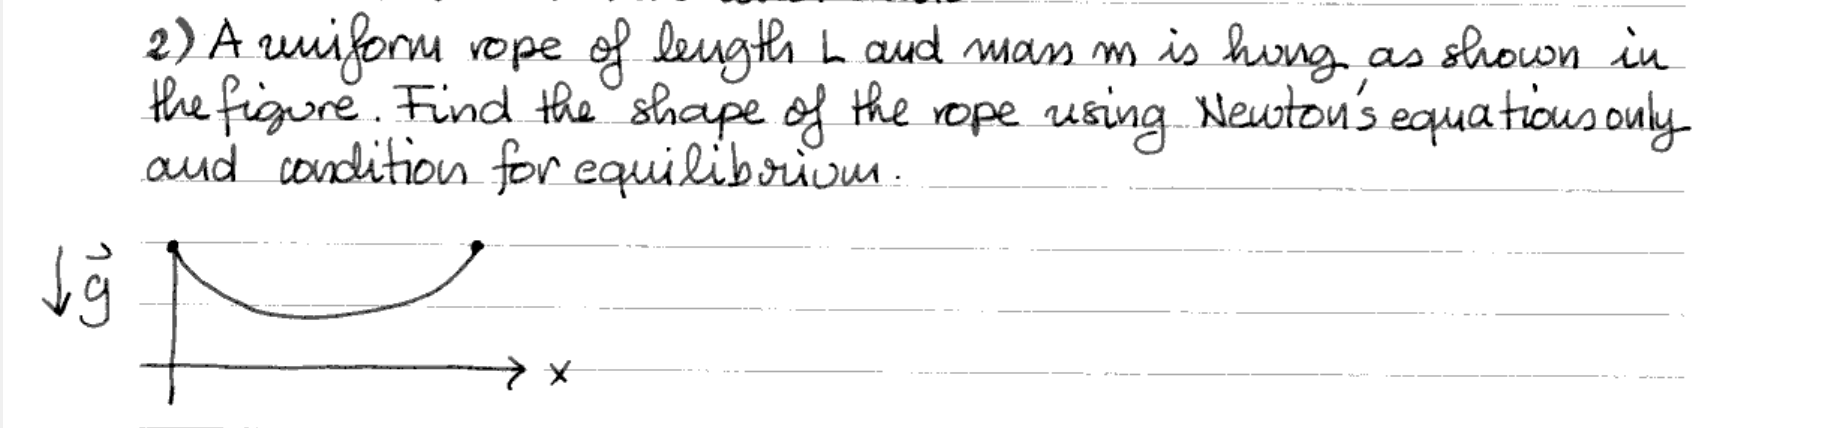 2) A uniform rope of length L and mass m is hung as shown in
the figure. Find the shape of the rope using Newton's equations only
and condition for equilibrium.
g
x